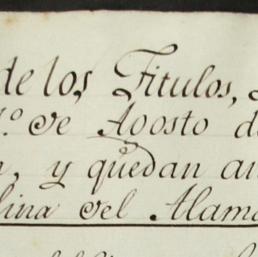 de los Titulos,
1.º de Agosto de
n, y quedan an
lina del Alama